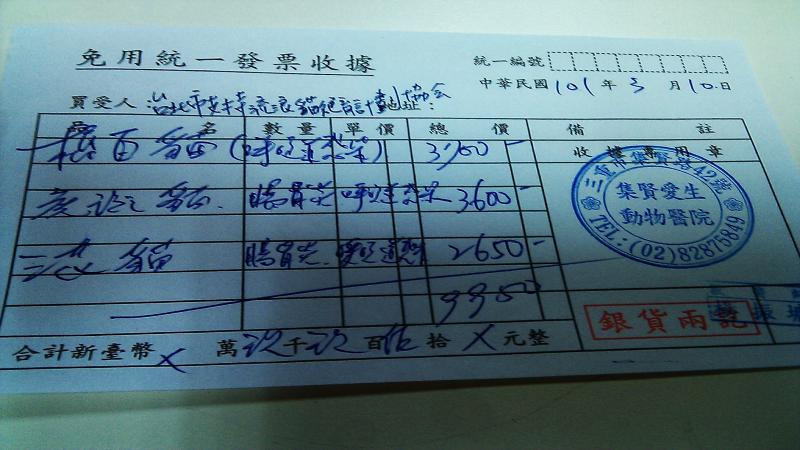 免用統一發票收據
統一編號
中華民國 101 年 3 月 10 日
買受人 台北市支持流浪貓絕育計劃協會 地址:
名 數量 單價 總價 備註
貓 (呼吸道感染) 3700- 收據專用章
貓 腸胃炎 呼吸道感染 3600-
三花貓 腸胃炎.呼吸道感染 2650-
9950
合計新臺幣 X 萬玖千玖百伍拾 X 元整
三重市集賢路42號
集賢愛生
動物醫院
TEL:(02)82875849
銀貨兩訖